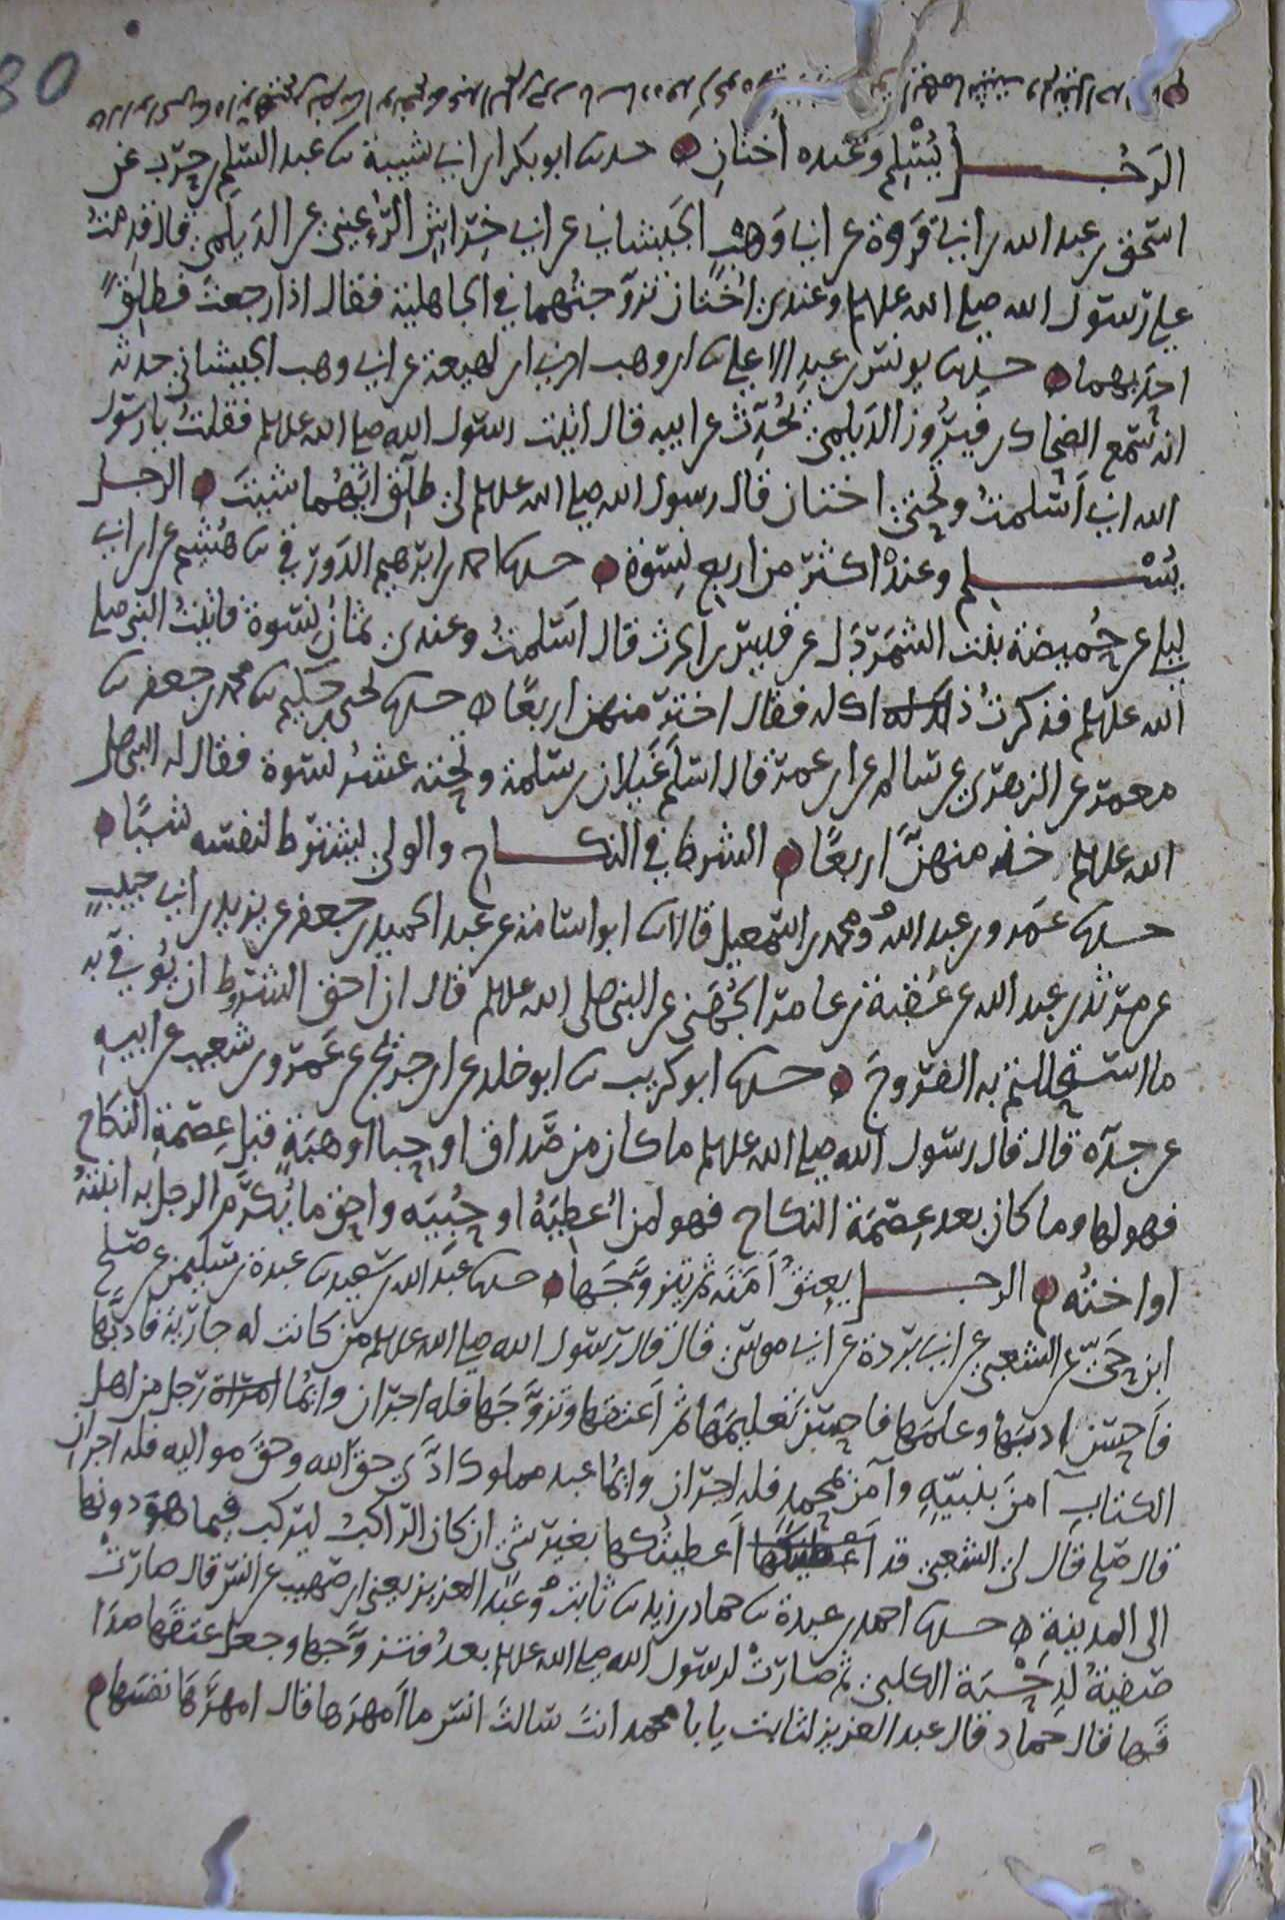 الرجــــل يُسْلِم وعنده أختان حدثنا ابو بكر ابن ابي شيبة نا عبد السلم بن حرب عن
اسحق بن عبد الله بن ابي فروة عن ابي وهب الجيشاني عن ابي خراش الرُّعيني عن الديلمي قال قدمتُ
على رسول الله صلى الله عليه وسلم وعندي أختان تزوجتُهما في الجاهلية فقال اذا رجعتَ فطلق
احديهما حدثنا يونس بن عبد الاعلى نا ابن وهب اخبرني ابن لهيعة عن ابي وهب الجيشاني حدثه
انه سمع الضحاك بن فيروز الديلمي يُحدّث عن ابيه قال اتيت رسول الله صلى الله عليه وسلم فقلتُ يا رسول
الله اني أسلمتُ وتحتي اختان قال رسول الله صلى الله عليه وسلم لي طلّق ايتهما شيتَ الرجــل
يُسْــــلم وعنده اكثر من اربع نسوة حدثنا احمد بن ابرهيم الدورقي نا هُشيم عن ابن ابي
ليلى عن حُميضة بنت الشمردل عن قيس بن الحرث قال اسلمتُ وعندي ثمان نسوة فاتيتُ النبي صلى
الله عليه وسلم فذكرتُ ذلك له فقال اختر منهن اربعًا حدثنا يحيى بن حكيم نا محمد بن جعفر نا
معمر عن الزهري عن سالم عن ابن عمر قال اسلم غَيلان بن سلمة وتحته عشرُ نسوة فقال له النبي صلى
الله عليه وسلم خذ منهنَّ اربعًا الشرط في النكــــاح والولي يشترط لنفسه شيًا
حدثنا عمرو بن عبد الله ومحمد بن اسمعيل قالا نا ابو اسامة عن عبد الحميد بن جعفر عن يزيد بن ابي حبيب
عن مرثد بن عبد الله عن عُقبة بن عامر الجُهَني عن النبي صلى الله عليه وسلم قال ان احق الشروط ان يُوفى به
ما استحللتم به الفروجَ حدثنا ابو كريب نا ابو خلد عن ابن جريج عن عَمرو بن شعيب عن ابيه
عن جده قال قال رسول الله صلى الله عليه وسلم ما كان من صداق او حِبا او هبَةٍ قبل عِصمةِ النكاح
فهو لها وما كان بعد عِصمَة النكاح فهو لمن اُعطِيَهُ او حُبِيَه واحق ما يُكرَم الرجل به ابنتُهُ
او اختُه الرجــــل يعتقُ أمَتَه ثم يتزوَّجَها حدثنا عبد الله بن سعيد نا عبدة بن سليمن عن صلح
ابن حَيّ عن الشعبي عن ابي بردة عن ابي موسى قال قال رسول الله صلى الله عليه وسلم من كانت له جارية فادبَّها
فاحسن ادبَها وعلمَها فاحسن تعليمَها ثم اعتقها وتزوَّجَها فله اجران وايُّما امراة رجل من اهل
الكتابِ آمنَ بنبيّهِ وآمن بمحمدٍ فله اجران وايُّما عبد مملوك ادَّى حقَ الله وحقَ مواليه فله اجران
قال صلح قال لي الشعبي قد اعطيتكها اعطيتُكها بغير شي ان كان الراكبُ ليركب فيما هو دونها
الى المدينة حدثنا احمد بن عبدة نا حماد بن زيد نا ثابت وعبد العزيز يعني ابن صهيب عن انس قال صارتْ
صَفيةُ لدِحْيَة الكلبي ثم صارتْ لرسول الله صلى الله عليه وسلم بعدُ فتزوَّجها وجعل عتقَها صدا
قَها قال حماد قال عبد العزيز لثابت يابا محمد انتَ سالتَ انس ما امهرَها قال امهرَها نفسَها